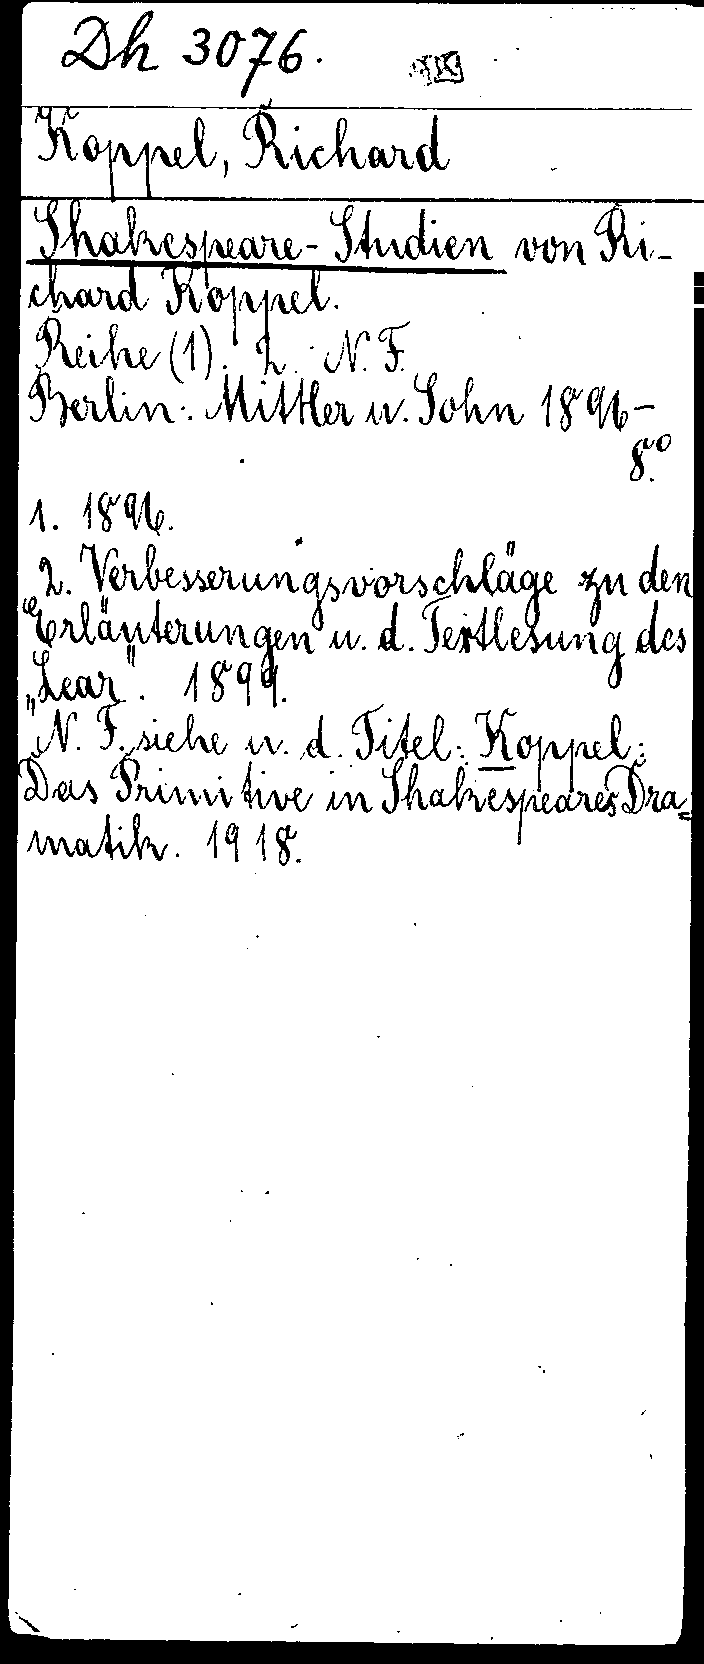 Dk 3076.
Koppel, Richard
Shakespeare-Studien von Ri-
chard Koppel.
Reihe (1). 2. N. F.
Berlin: Mittler u. Sohn 1896-
8.°
1. 1896.
2. Verbesserungsvorschläge zu den
Erläuterungen u. d. Textlesung des
„Lear“. 1899.
N. F. siehe u. d. Titel: Koppel:
Das Primitive in Shakespeares Dra=
matik. 1918.